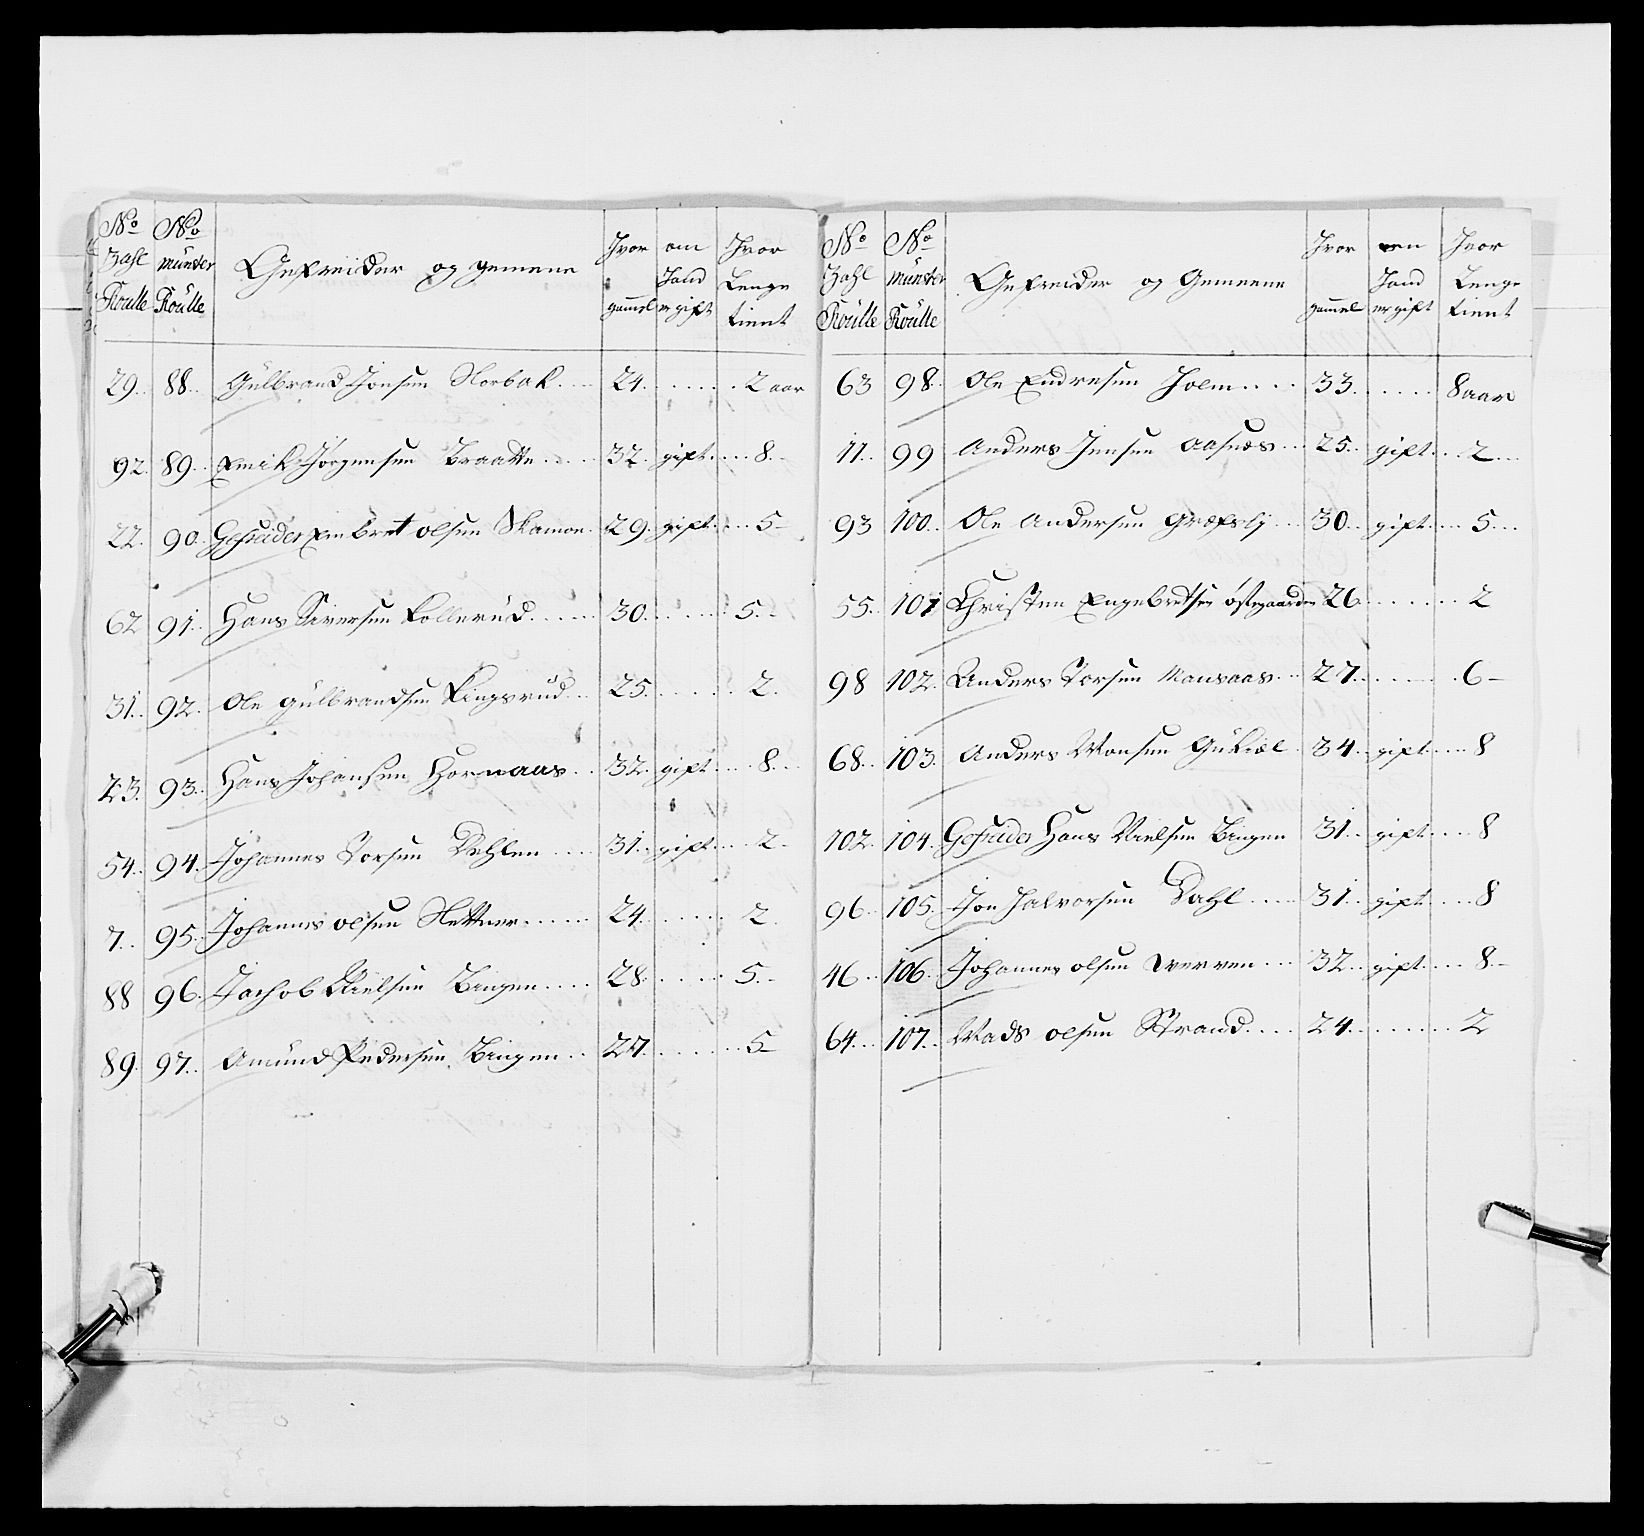 No Zahl Roulle | No münster Roülle | Gefreider og gemeene | Hvor gammel | om Hand er gift | Hvor Lenge tient
29 88 Gülbrand Jonsen Norbak 24 2 aar
92 89 Erick Jörgensen Braatte 32 gift 8
22 90 Gefreider Embret olsen Skamoe 29 gift 5
62 91 Hans Siversen Follerud 30 5
31 92 Ole gülbrandsen Ringsrud 25 2
23 93 Hans Johansen Hornaas 32 gift 8
54 94 Johannes Torsen Dehlen 31 gift 2
7 95 Johannes olsen 24 2
88 96 Jachob Nielsen Bingen 28 5
89 97 Amünd Pedersen Bingen 27 5
No Zahl Roülle | No münster Roülle | Gefreider og Gemeene | Hvor gammel | om Hand er gift | Hvor Lenge tient
63 98 Ole Endresen Holm 33 8 aar
11 99 Anders Jensen Aasnæs 25 gift 2
93 100 Ole Andersen 30 gift 5
55 101 Christen Engebretsen östgaarden 26 2
98 102 Anders Torsen 27 6
68 103 Anders Monsen 34 gift 8
102 104 Gefreider Hans Nielsen Bingen 31 gift 8
96 105 Jon Halvorsen Dahl 31 gift 8
46 106 Johannes olsen 32 gift 8
64 107 Mads olsen Strand 24 2